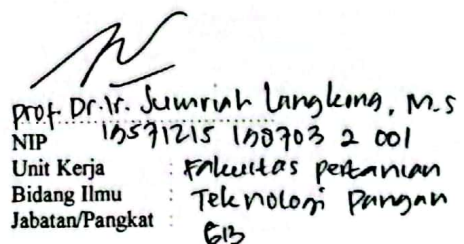 Prof. Dr. Ir. Jumriah Langkong, M.S
NIP 19571215 198703 2 001
Unit Kerja : Fakultas pertanian
Bidang Ilmu : Teknologi Pangan
Jabatan/Pangkat :